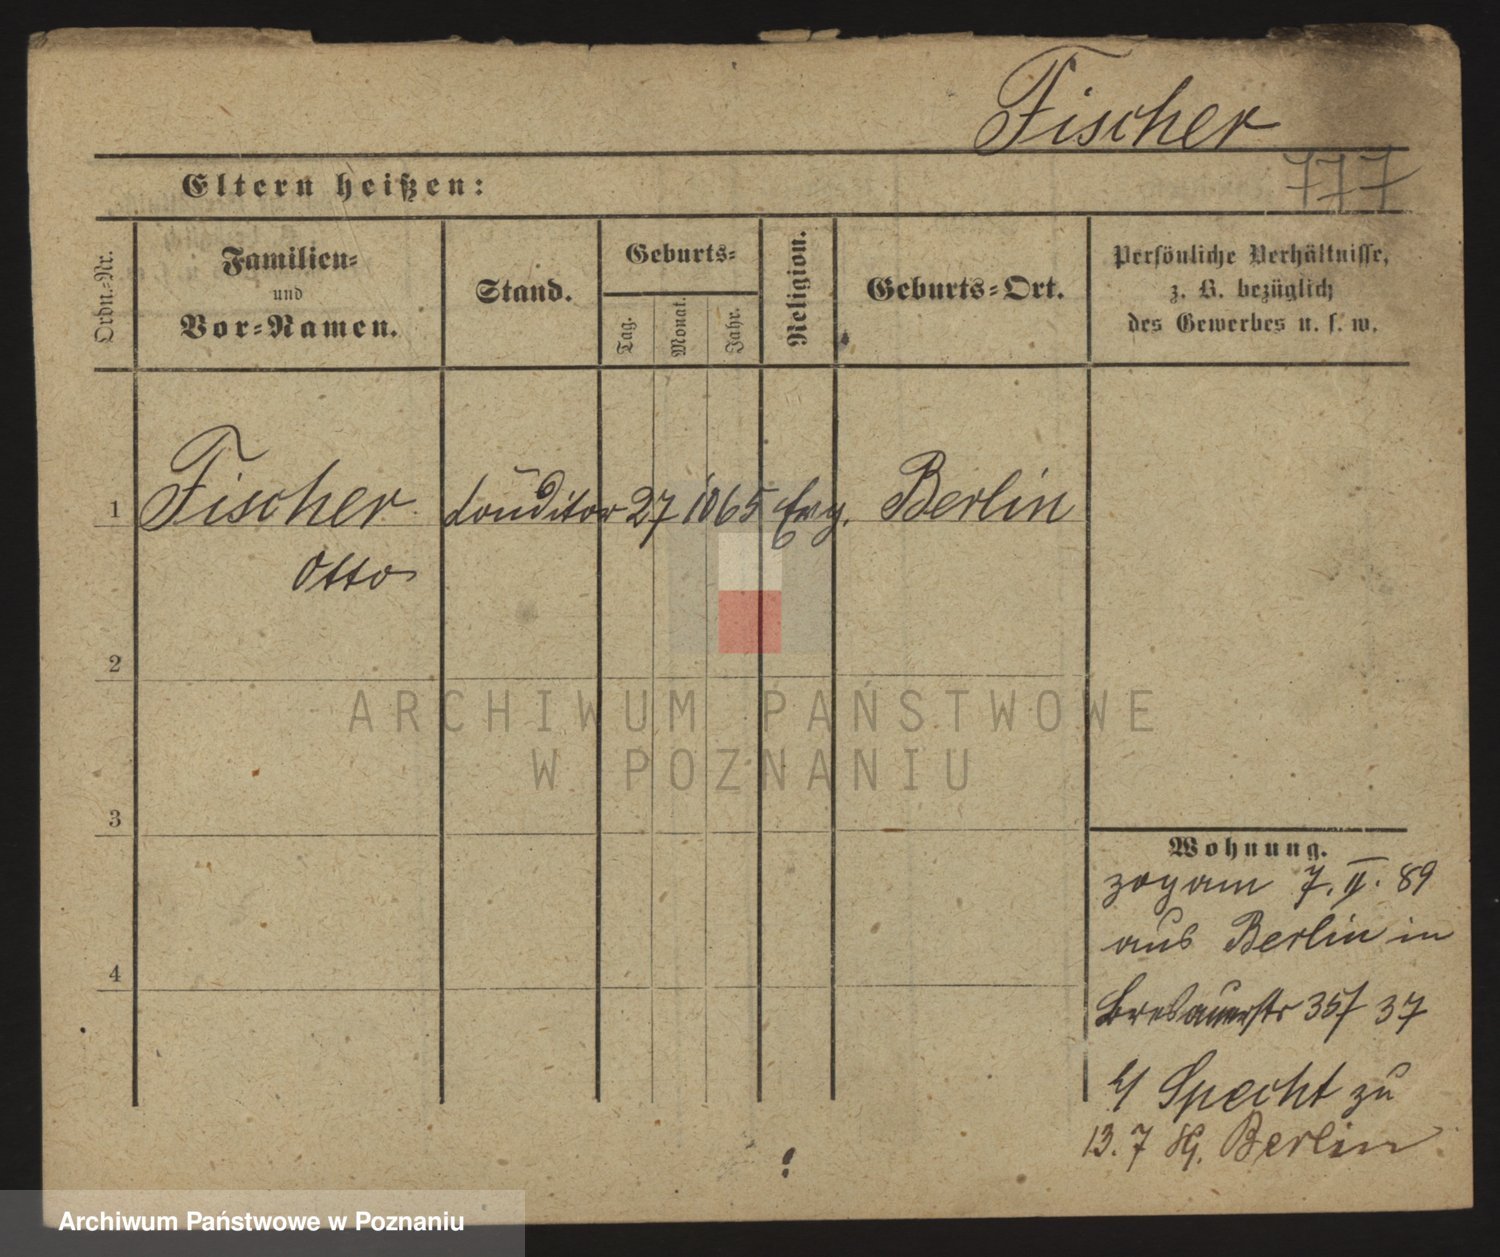 Fischer
777
Eltern heißen:
Ordn.-Nr.
Familien-
und
Vor-Namen.
Stand.
Geburts-
Tag.
Monat.
Jahr.
Religion.
Geburts-Ort.
Persönliche Verhältnisse,
z. B. bezüglich
des Gewerbes u. s. w.
1 Fischer Conditor 27 10 65 Evg. Berlin
Otto
2
3
4
Wohnung.
zog am 7. II. 89
aus Berlin in
37
Specht zu
13. 7 Berlin
ARCHIWUM PAŃSTWOWE
W POZNANIU
Archiwum Państwowe w Poznaniu